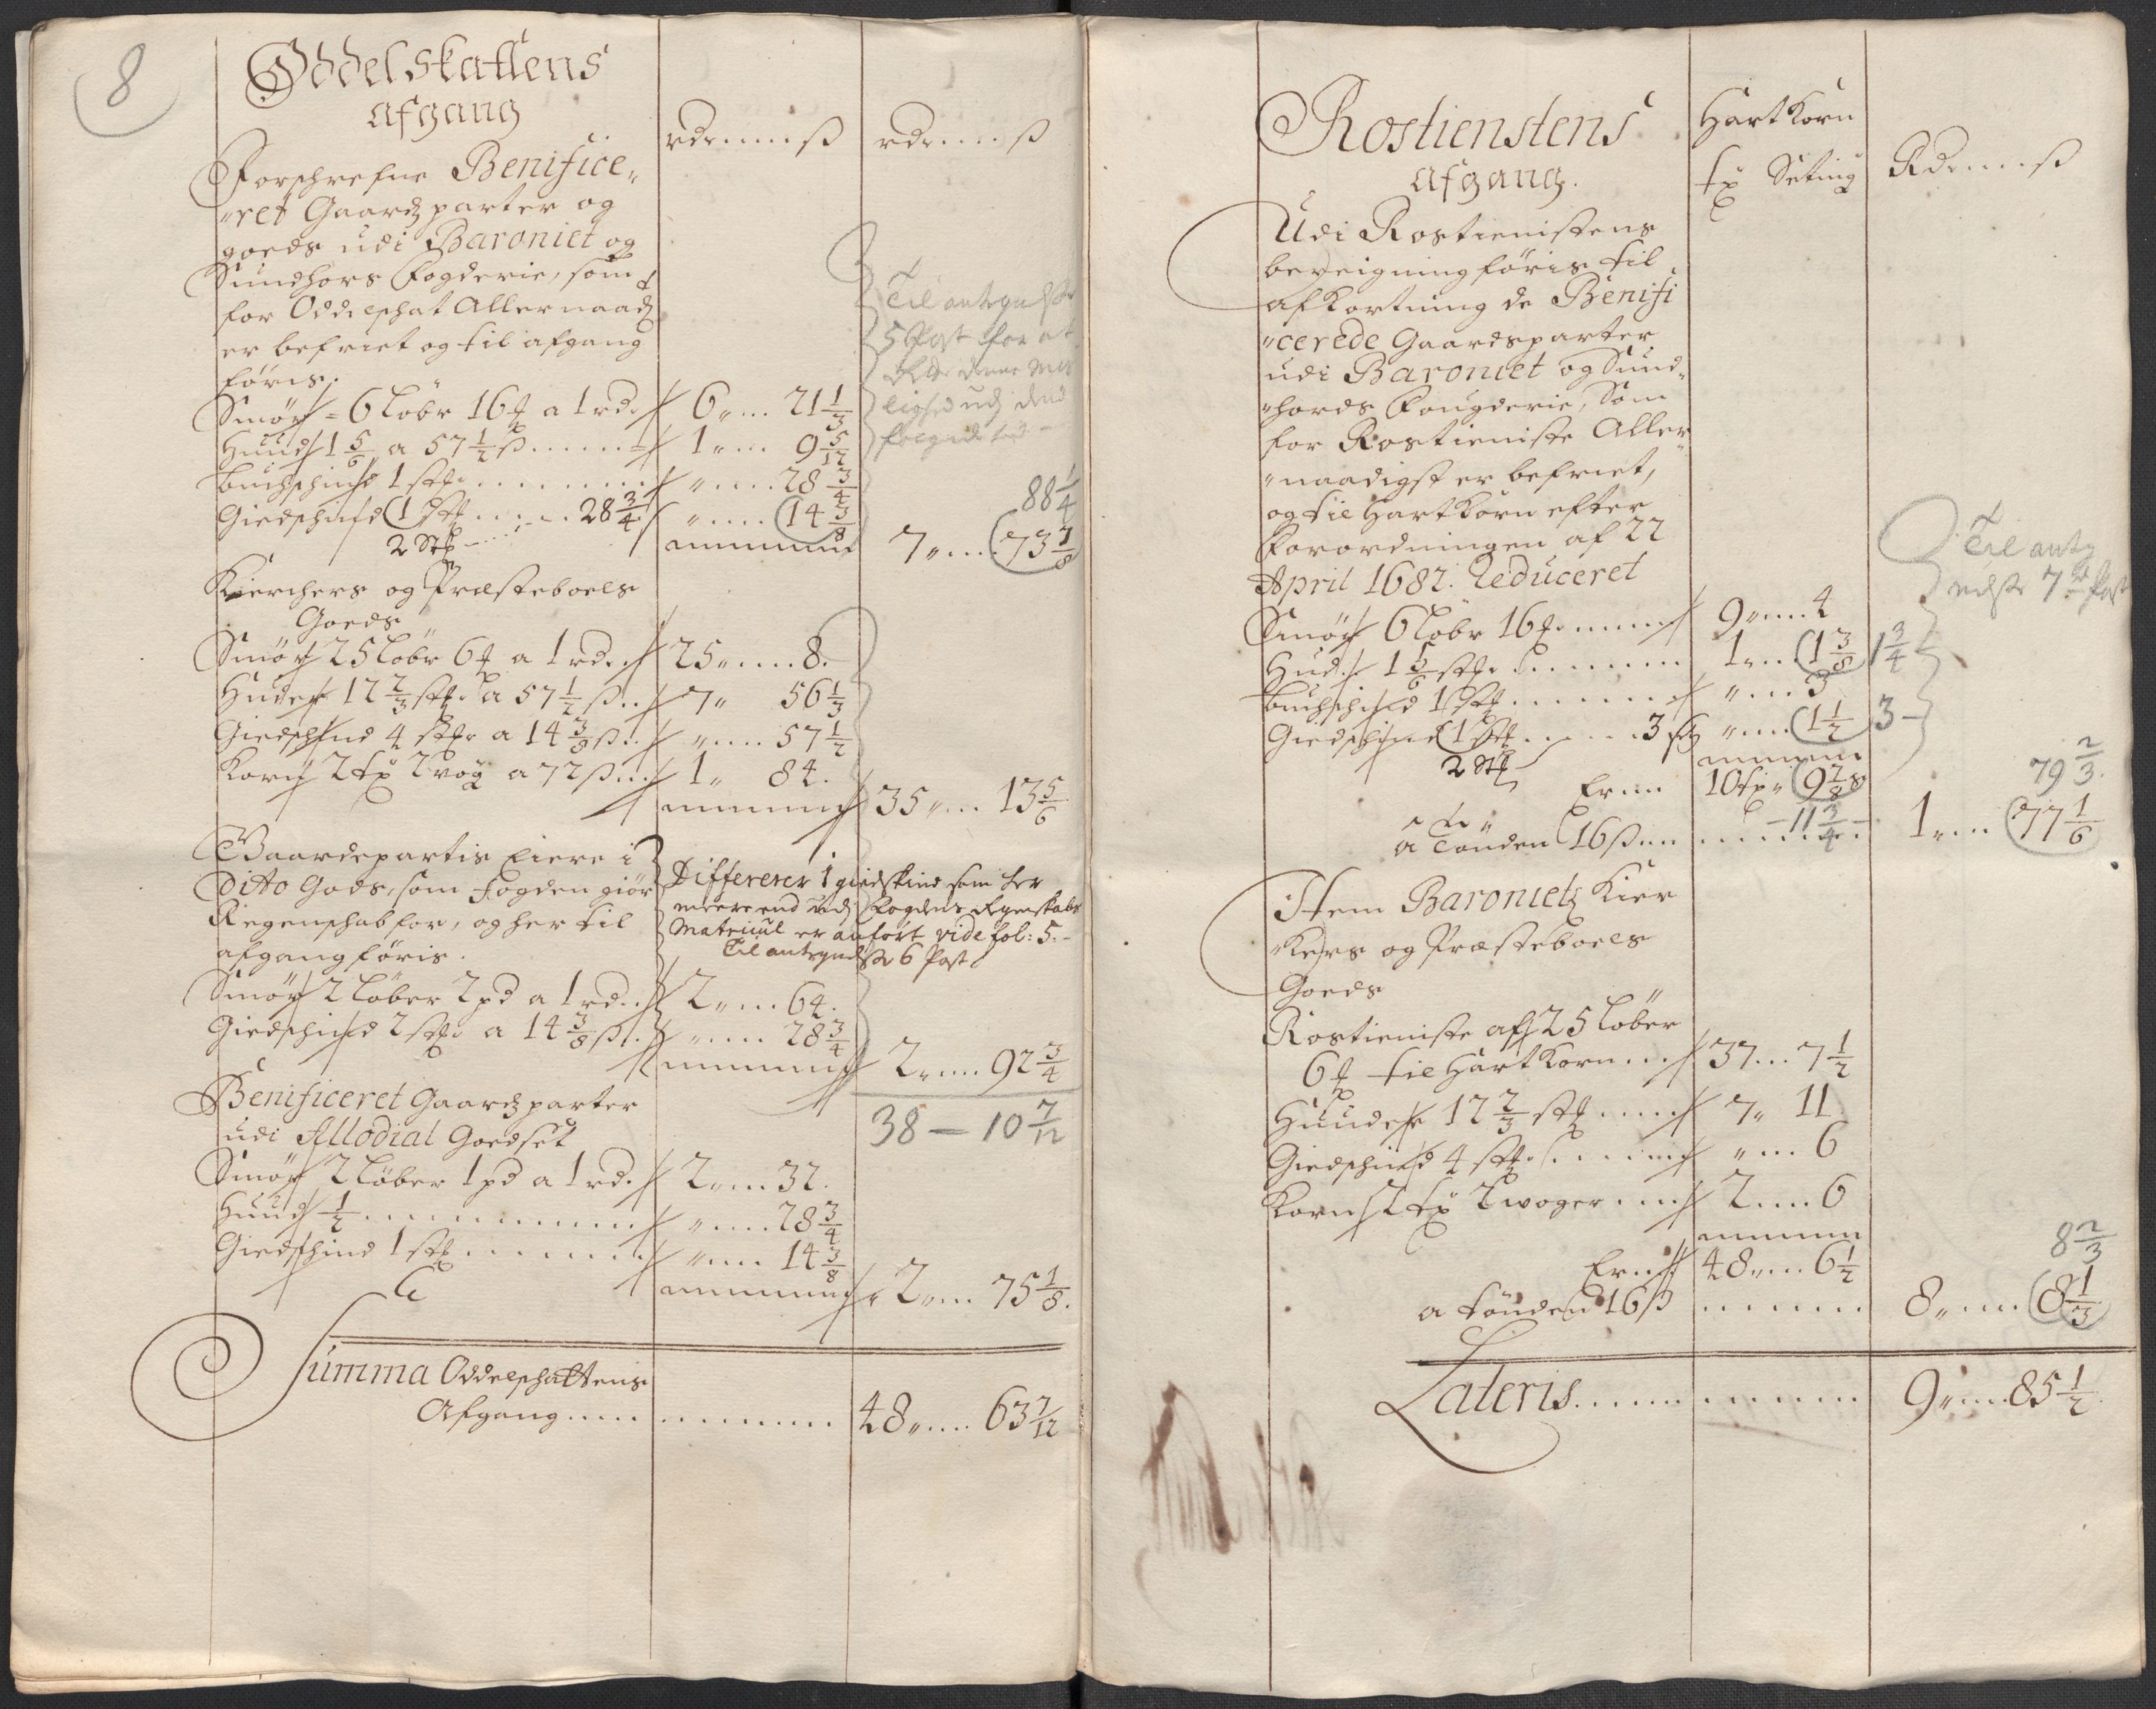 8
Oddelskattens
afgang
rdr ß
rdr ß
Forschrefne Benifice„
„ret Gaardz parter og
goeds udi Baroniet og
Sundhors fogderie, som
for Oddelschat Allernaad
er befriet og til afgang
föris.
Smör = 6 löbr 16 a 1 rd. 6„ 21 1/3
Huud 1 5/6 a 57 1/2 ß 1„ 9 5/12
buchschind 1 stk. „ 28 3/4
Giedschind 1 stk 28 3/4 „ 14 3/8
2 Stk
88 1/4
7„ 73 7/8
Til antegnelse
5 Post for at
denne
Kierchers og Præsteboels
Goeds
Smör 25 löbr 6 a 1 rd. 25„ 8.
Huder 12 2/3 stk. a 57 1/2 ß. 7„ 56 1/3
Giedschind 4 stkr a 14 3/8 ß. „ 57 1/2
Korn 2 tx 2 vog a 72 ß. 1„ 84.
35„ 13 5/6
Gaardepartis Eiere i
Ditto Gods, som fogden giör
Regenschab for, og her til
afgang föris.
Differerer 1 giedskind som her
meere end udj Fogdens Regenskabs
Matricul er anfört vide fol: 5.
Til antegnelse 6 Post
Smör 2 löber 2 pd a 1 rd. 2„ 64.
Giedschind 2 stk. a 14 3/8 ß. „ 28 3/4
2„ 92 3/4
38 — 10 7/12
Benificeret Gaardz parter
udi Allodial Goedset
Smör 2 löber 1 pd a 1 rd. 2„ 32.
Huud 1/2 „ 28 3/4
Giedschind 1 stk „ 14 3/8
2„ 75 1/8.
Summa Oddelschattens
Afgang 48„ 63 7/12
Rostienstens
afgang.
Hart Korn
tx Setting
Rdr ß
Udi Rostienistens
bereigning föris til
afkortning de Benifi
„cerede Gaardsparter
udi Baroniet og Sund„
„hords Fougderie, Som
for Rostieniste Aller„
„naadigst er befriet,
og til Hart Korn efter
Forordningen af 22
April 1682. Reduceret
Til antegnelse 7de Post
Smör 6 löbr 16 9„ 4
Hud. 1 5/6 stk. 1„ 1 3/8 1 3/4
buchschind 1 stk „ 3
Giedschind 1 stk 3 „ 1 1/2 3 -
2 Stk
Er 10 tx„ 9 7/8
79 2/3.
a Tönden 16 ß - 11 3/4 - 1„ 77 1/6
Item Baronietz Kier
„Kers og Præsteboels
Goeds
Rostieniste af 25 löber
6 til Hart Korn 37 7 1/2
Huuder 12 2/3 stk 7„ 11
Giedschind 4 stk. „ 6
Korn 2 tx 2 woger 2 6
Er 48„ 6 1/2
8 2/3
a tönden 16 ß 8„ 8 1/3
Lateris 9„ 85 1/2.